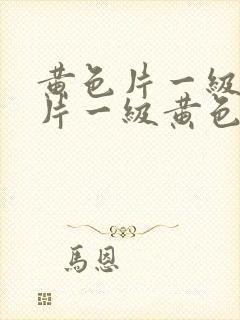 黄色片一級
片一級黄色
馬恩